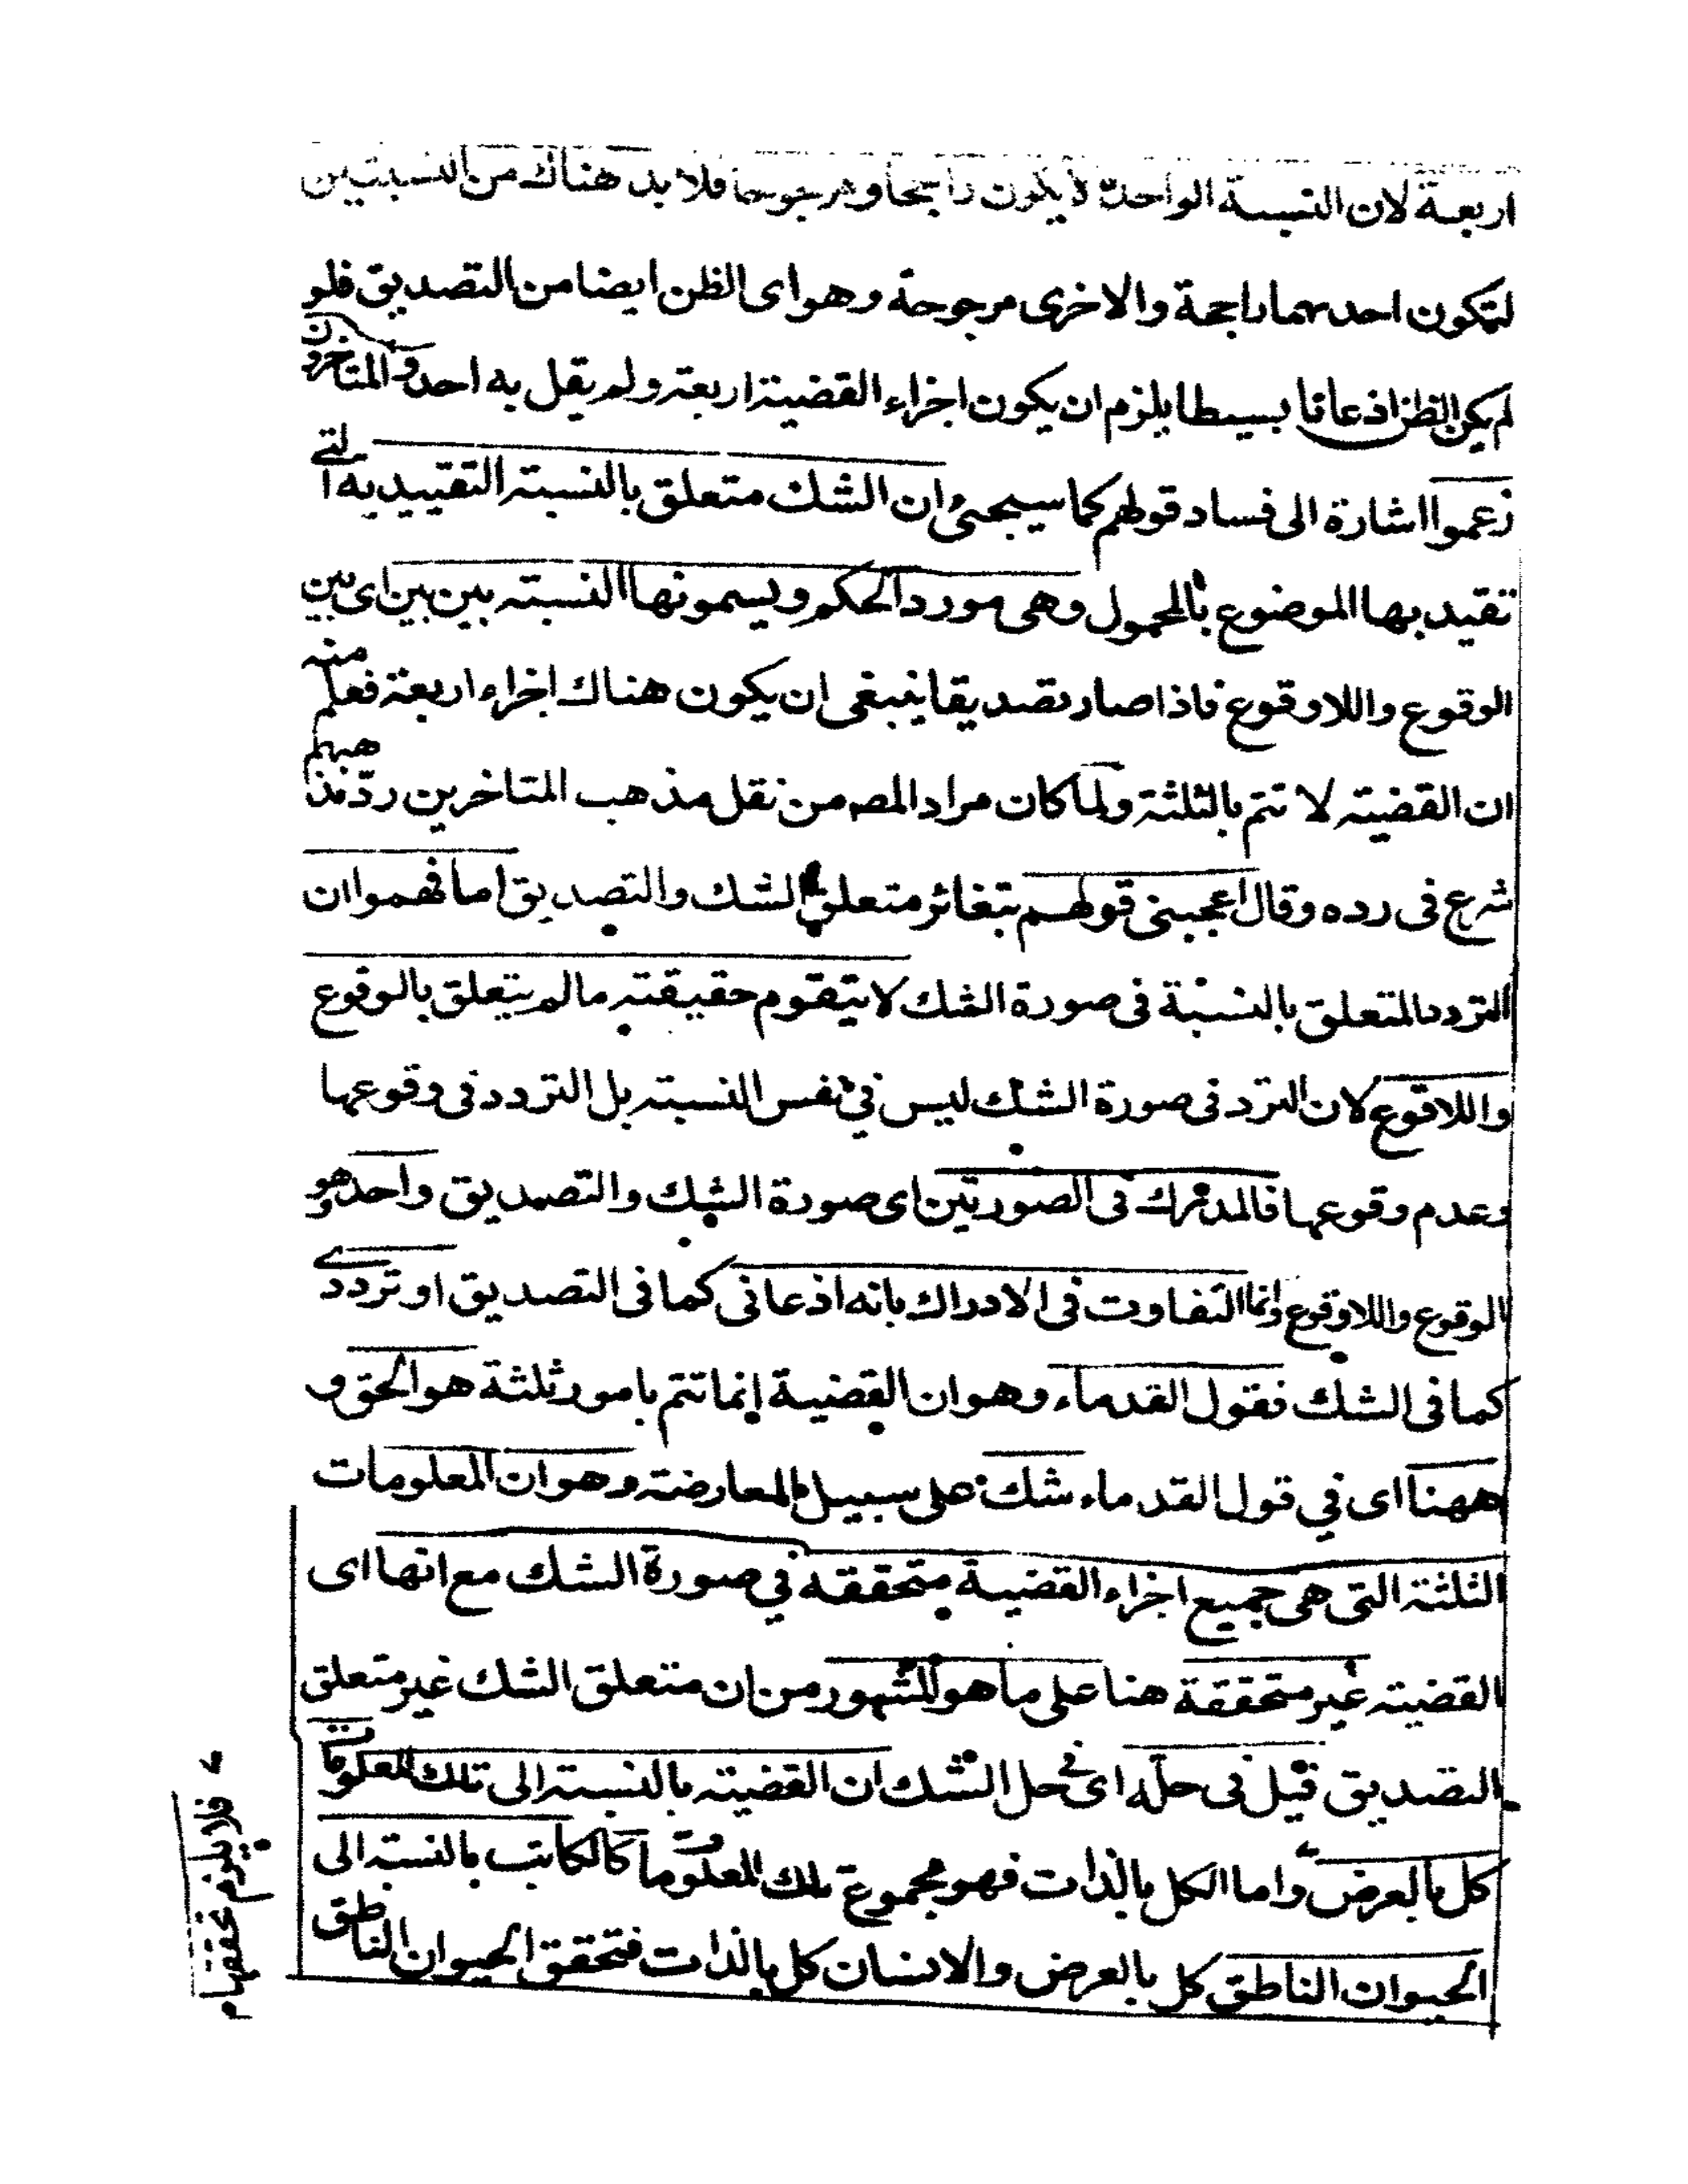 اربعة لان النسبة الواحدة لا يكون راجحا ومرجوحا فلا بد هناك من النسبتين
لتكون احدىهما راجحة والاخرى مرجوحة وهو اى الظن ايضا من التصديق فلو
لم يكن الظن اذعانا بسيطا يلزم ان يكون اجزاء القضية اربعة ولم يقل به احد والمتاخرون
زعموا اشارة الى فساد قولهم كما سيجئ ان الشك متعلق بالنسبة التقييديه التى
تقيد بها الموضوع بالمحمول وهى مورد الحكم ويسمونها النسبته بين بين اى بين
الوقوع واللاوقوع فاذا صار تصديقا ينبغى ان يكون هناك اجزاء اربعة فعلم منه
ان القضيته لا تتم بالثلثة ولما كان مراد المصـ من نقل مذهب المتاخرين ردّ مذهبهم
شرع فى رده وقال اعجبنى قولهم بتغائر متعلق الشك والتصديق اما فهموا ان
التردد المتعلق بالنسبة فى صورة الشك لا يتقوم حقيقته ما لم يتعلق بالوقوع
واللاقوع لان الترد فى صورة الشك ليس في نفس النسبته بل التردد فى وقوعها
وعدم وقوعها فالمدرك فى الصورتين اى صورة الشك والتصديق واحد وهو
الوقوع واللاوقوع وانما التفاوت فى الادراك بانه اذعانى كما فى التصديق او ترددى
كما فى الشك فقول القدماء وهو ان القضية انما تتم بامور ثلثة هو الحق و
ههنا اى في قول القدماء شك على سبيل المعارضته وهو ان المعلومات
الثلثة التى هى جميع اجزاء القضية متحققه في صورة الشك مع انها اى
القضيته غير متحققة هنا على ما هو المشهور من ان متعلق الشك غير متعلق
التصديق قيل فى حلّه اى فى حل الشك ان القضيته بالنسبته الى تلك المعلومات
كل بالعرض واما الكل بالذات فهو مجموع تلك المعلومات كالكاتب بالنسبته الى
الحيوان الناطق كل بالعرض والانسان كل بالذات فتحقق الحيوان الناطق
فلا يلزم تحققها